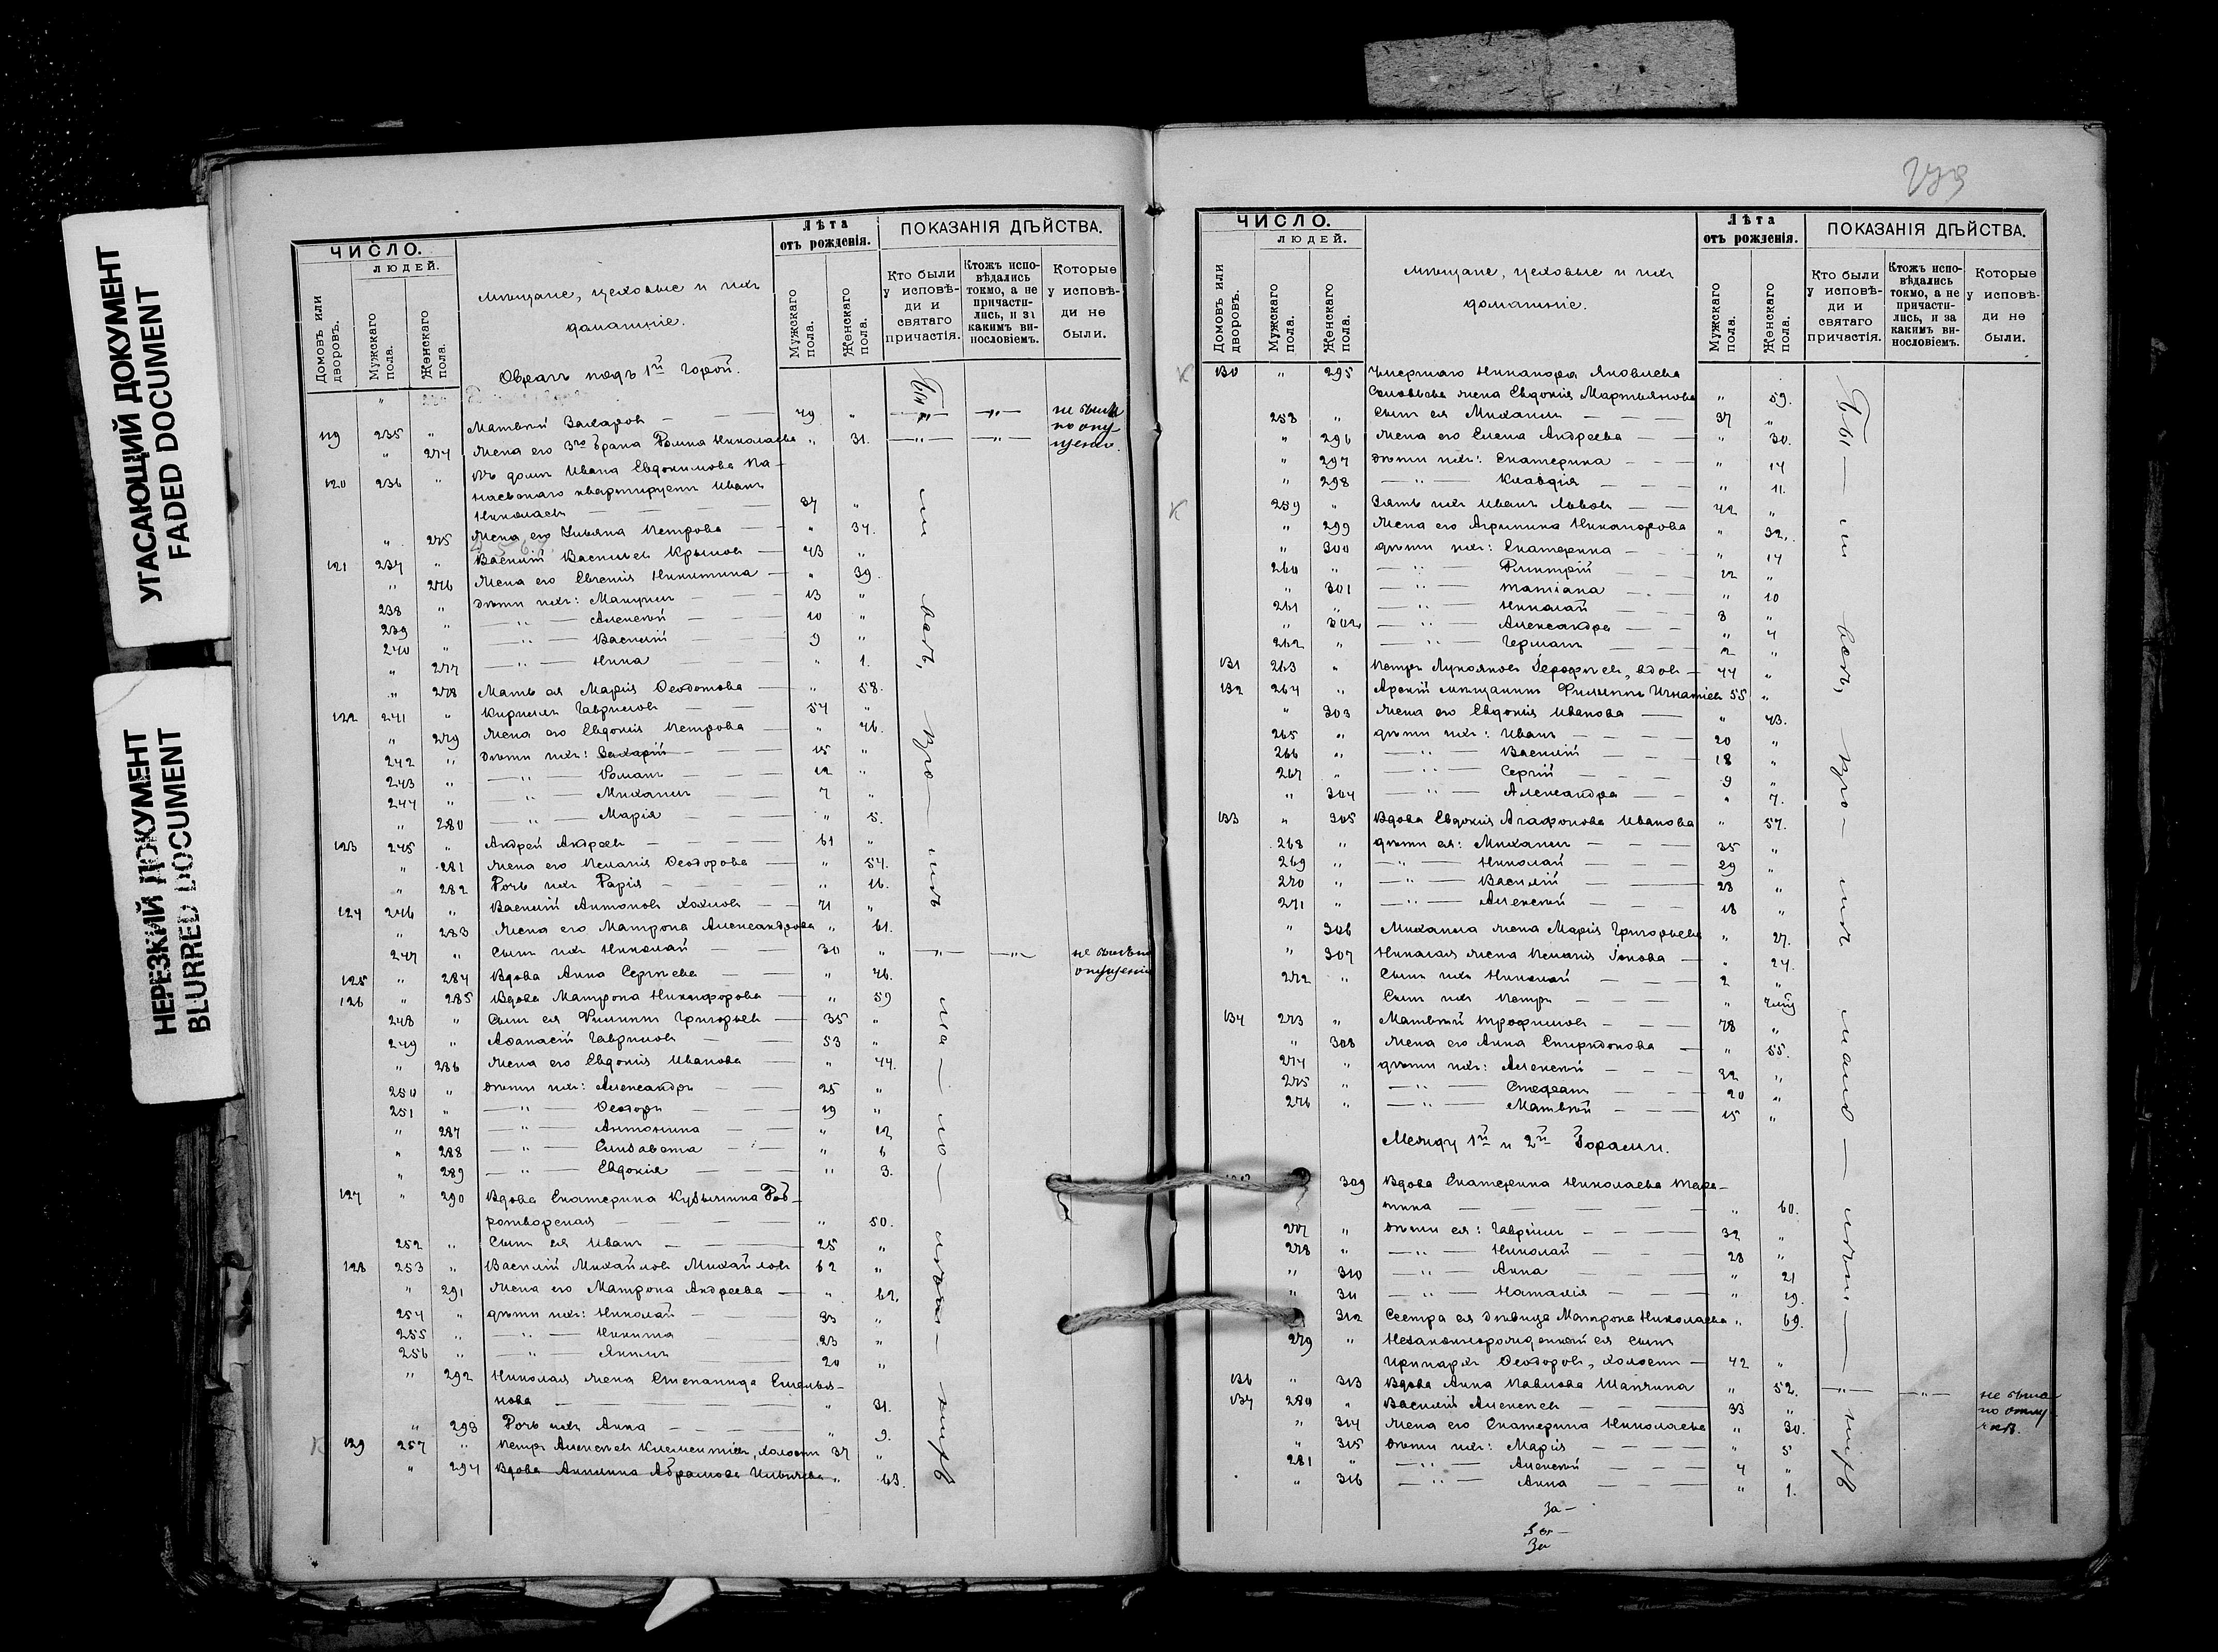 УГАСАЮЩИЙ ДОКУМЕНТ
FADED DOCUMENT
НЕРЕЗКИЙ ДОКУМЕНТ
BLURRED DOCUMENT
ЧИСЛО.
ЛЮДЕЙ.
Домовъ или дворовъ.
Мужскаго пола.
Женскаго пола.
мѣщане, цеховые и ихъ
домашніе.
Лѣта
отъ рожденія.
Мужскаго пола.
Женскаго пола.
ПОКАЗАНІЯ ДѢЙСТВА.
Кто были у исповѣди и святаго причастія.
Ктожъ исповѣдались токмо, а не причастились, и за какимъ винословіемъ.
Которые у исповѣди не были.
Оврагъ подъ 1й Горой.
119 235 " Матвѣй Захаровъ — 79 " не были
" 274 Жена его 3го брака Николаева " 31. по опу-
щенію.
120 236 " Въ домѣ Ивана Евдокимова
квартируетъ Иванъ
Николаевъ — 37 "
" 275 Жена его Ульяна Петрова — " 34.
121 237 " Василій Васильевъ Крыловъ — 43 "
" 276 Жена его Евгенія Никитина — " 39.
238 " дѣти ихъ: — 13 "
239 " — " — Алексѣй — 10 "
240 " — " — Василій — 9 "
" 277 — " — Нина — " 1.
" 278 Мать ея Марія Ѳедотова — " 58.
122 241 " Кириллъ Гавриловъ — 54 "
" 279 Жена его Евдокія Петрова — " 46.
242 " дѣти ихъ: Захарій — 15 "
243 " — " — Романъ — 12 "
244 " — " — Михаилъ — 7 "
" 280 — " — Марія — " 5.
123 245 " Андрей Андреевъ — 61 "
" 281 Жена его Пелагія Ѳеодорова — " 54.
" 282 Дочь ихъ Дарія — " 16.
124 246 " Василій Антоновъ Хохловъ — 71 "
" 283 Жена его Матрона Александрова " 61.
247 " Сынъ ихъ Николай — 30 " — " — — " —
125 " 284 Вдова Анна Сергѣева — " 46.
126 " 285 Вдова Матрона Никифорова — " 59
248 " Сынъ ея Филиппъ Григорьевъ — 35 "
249 " Аѳанасій Гавриловъ — 53 "
" 286 Жена его Евдокія Иванова — " 44.
250 " дѣти ихъ: Александръ — 25 "
251 " — " — Ѳеодоръ — 19 "
" 287 — " — Антонина — " 12
" 288 — " — Елизавета — " 6
" 289 — " — Евдокія — " 3.
127 " 290 Вдова Екатерина Кузьмина Доб-
ротворская — " 50.
252 " Сынъ ея Иванъ — 25 "
128 253 " Василій Михайловъ Михайловъ 62 "
" 291 Жена его Матрона Андреева — " 62.
254 " дѣти ихъ: Николай — 33 "
255 " — " — Никита — 23 "
256 " — " — Акимъ — 20 "
" 292 Николая жена Степанида Емелья-
нова — " 31.
" 293 Дочь ихъ Анна — " 9.
129 257 " Петръ Алексѣевъ Климентьевъ, холостъ 37 "
" 294 Вдова Акилина Абрамова Ильичева " 63.
ЧИСЛО.
ЛЮДЕЙ.
Домовъ или дворовъ.
Мужскаго пола.
Женскаго пола.
мѣщане, цеховые и ихъ
домашніе.
Лѣта
отъ рожденія.
Мужскаго пола.
Женскаго пола.
ПОКАЗАНІЯ ДѢЙСТВА.
Кто были у исповѣди и святаго причастія.
Ктожъ исповѣдались токмо, а не причастились, и за какимъ винословіемъ.
Которые у исповѣди не были.
130 " 295 Умершаго Никанора Яковлева
Соловьева жена Евдокія Мартьянова " 59.
258 " Сынъ ея Михаилъ — 37 "
" 296 Жена его Елена Андреева — " 30.
" 297 дѣти ихъ: Екатерина — " 14
" 298 — " — Клавдія — " 11.
259 " Зять ихъ Иванъ Львовъ — 42 "
" 299 Жена его Агрипина Никанорова " 32.
" 300 дѣти ихъ: Екатерина — " 14
260 " — " — Димитрій — 12 "
" 301 — " — Татіана — " 10
261 " — " — Николай — 8 "
" 302 — " — Александра — " 4
262 " — " — Германъ — 2 "
131 263 " Петръ Лукояновъ Ерофѣевъ, вдовъ — 44 "
132 264 " Арскій мѣщанинъ Филиппъ Игнатіевъ 55 "
" 303 Жена его Евдокія Иванова — " 43.
265 " дѣти ихъ: Иванъ — 20 "
266 " — " — Василій — 18 "
267 " — " — Сергій — 9 "
" 304 — " — Александра — " 7.
133 " 305 Вдова Евдокія Агафонова Иванова " 57.
268 " дѣти ея: Михаилъ — 35 "
269 " — " — Николай — 29 "
270 " — " — Василій — 23 "
271 " — " — Алексѣй — 18 "
" 306 Михаила жена Марія Григорьева " 27.
" 307 Николая жена Пелагія Іонова — " 24.
272 " Сынъ ихъ Николай — 2 "
Сынъ ихъ Петръ — "
134 273 " Матвѣй Трофимовъ — 78 "
" 308 Жена его Анна Спиридонова — " 55.
274 " дѣти ихъ: Алексѣй — 32 "
275 " — " — Стефанъ — 20 "
276 " — " — Матвѣй — 15 "
Между 1й и 2й Горами.
309 Вдова Екатерина Николаева
" 60.
277 " дѣти ея: Гавріилъ — 32 "
278 " — " — Николай — 28 "
" 310 — " — Анна — " 21
" 311 — " — Наталія — " 19.
312 Сестра ея дѣвица Матрона Николаева " 69.
279 " Незаконнорожденный ея сынъ
Иринархъ Ѳеодоровъ, холостъ — 42 "
136 " 313 Вдова Анна Павлова Шапкина " 52. — " — — " — не была
137 280 " Василій Алексѣевъ — 33 " по отлу-
" 314 Жена его Екатерина Николаева " 30. чкѣ.
" 315 дѣти ихъ: Марія — " 5
281 " — " — Алексѣй — 4 "
" 316 — " — Анна — " 1.
За —
За —
За